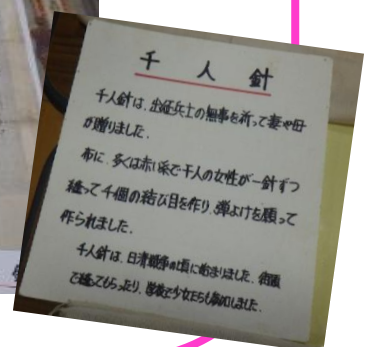 千人針
千人針は、出征兵士の無事を祈って妻や母
が贈りました。
布に、多くは赤い糸で千人の女性が一針ずつ
縫って千個の結び目を作り、弾よけを願って
作られました。
千人針は、日清戦争の頃に始まりました。街頭
で縫ってもらったり、学校で少女たちも参加しました。